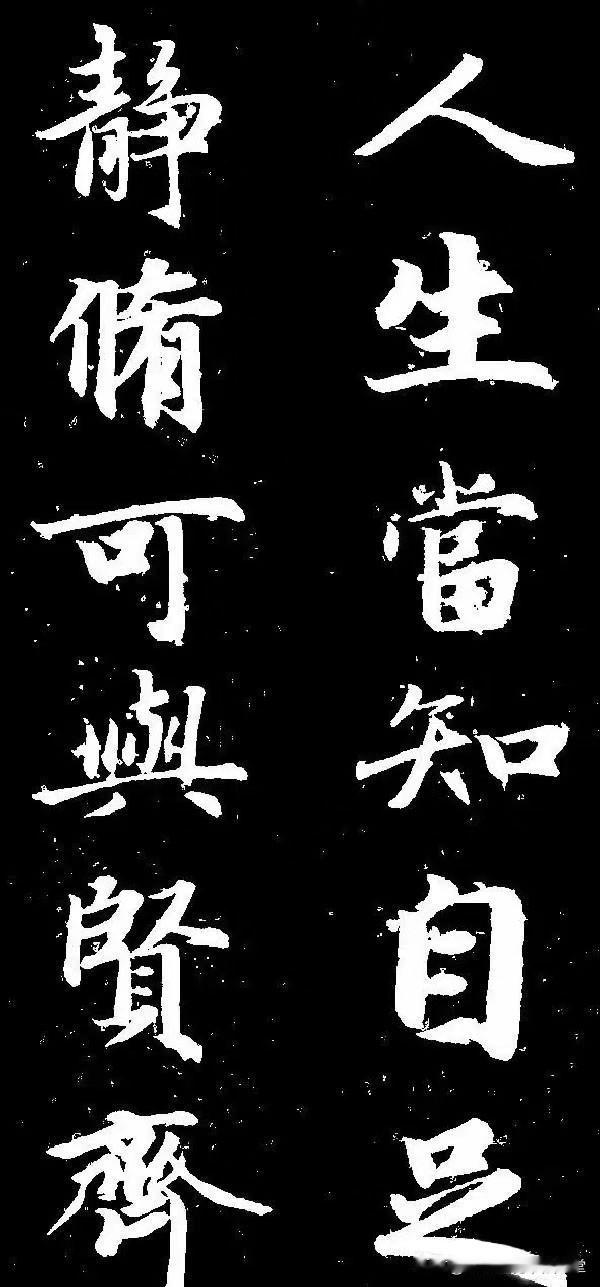 人生當知自足
靜脩可與賢齊